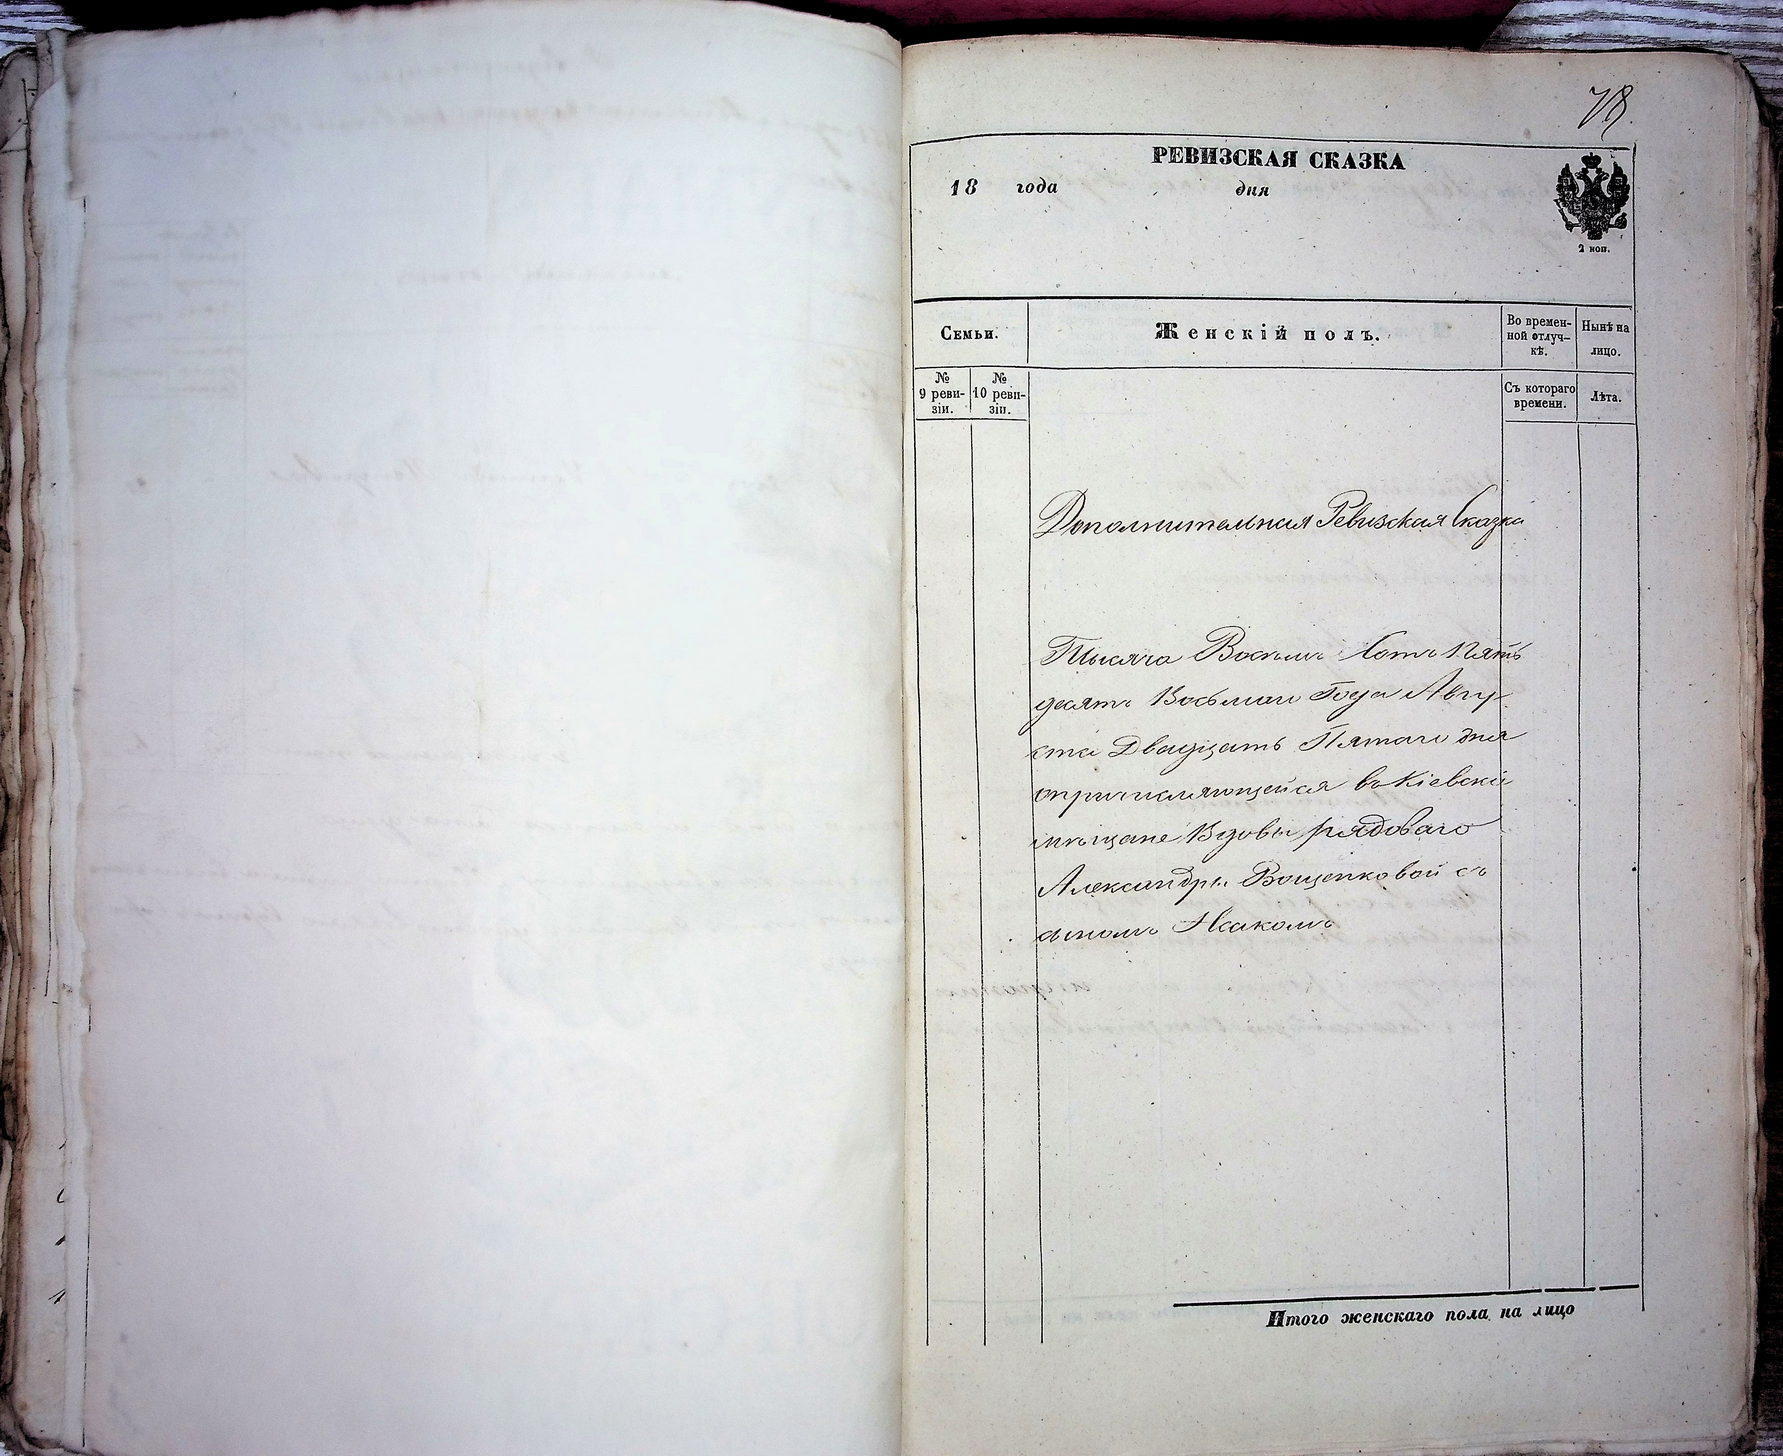 78
РЕВИЗСКАЯ СКАЗКА
18 года дня
2 коп.
Семьи.
Женскій полъ.
Во времен-
ной отлуч-
кѣ.
Нынѣ на
лицо.
№
9 реви-
зіи.
№
10 реви-
зіи.
Съ котораго
времени.
Лѣта.
Дополнительная Ревизская Сказка
Тысяча Восемь Сотъ Пять
десятъ Восьмаго Года Авгу
ста Двадцать Пятаго дня
опричисляющейся въ Кіевскіе
мѣщане Вдовы рядоваго
Александры Вощенковой съ
сыномъ Исакомъ
Итого женскаго пола на лицо